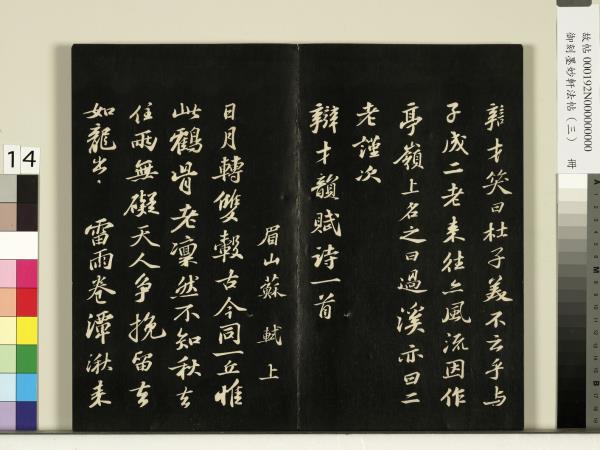 辯才笑曰杜子美不云乎与
子成二老来往亦風流因作
亭嶺上名之曰過溪亦曰二
老謹次
辯才韻賦诗一首
眉山蘇軾上
日月轉雙轂古今同一丘惟
此鶴骨老凜然不知秋去
住兩無礙天人争挽留去
如龍出〻雷雨卷潭湫来
故帖 000192N000000000
御刻墨妙軒法帖(三) 冊
14